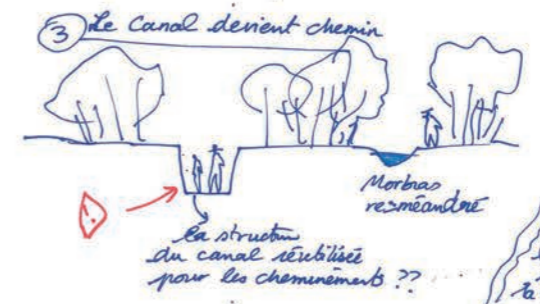 3 Le Canal devient chemin
!
Morbras
resméandré
la structure
du canal réutilisée
pour les cheminements ??